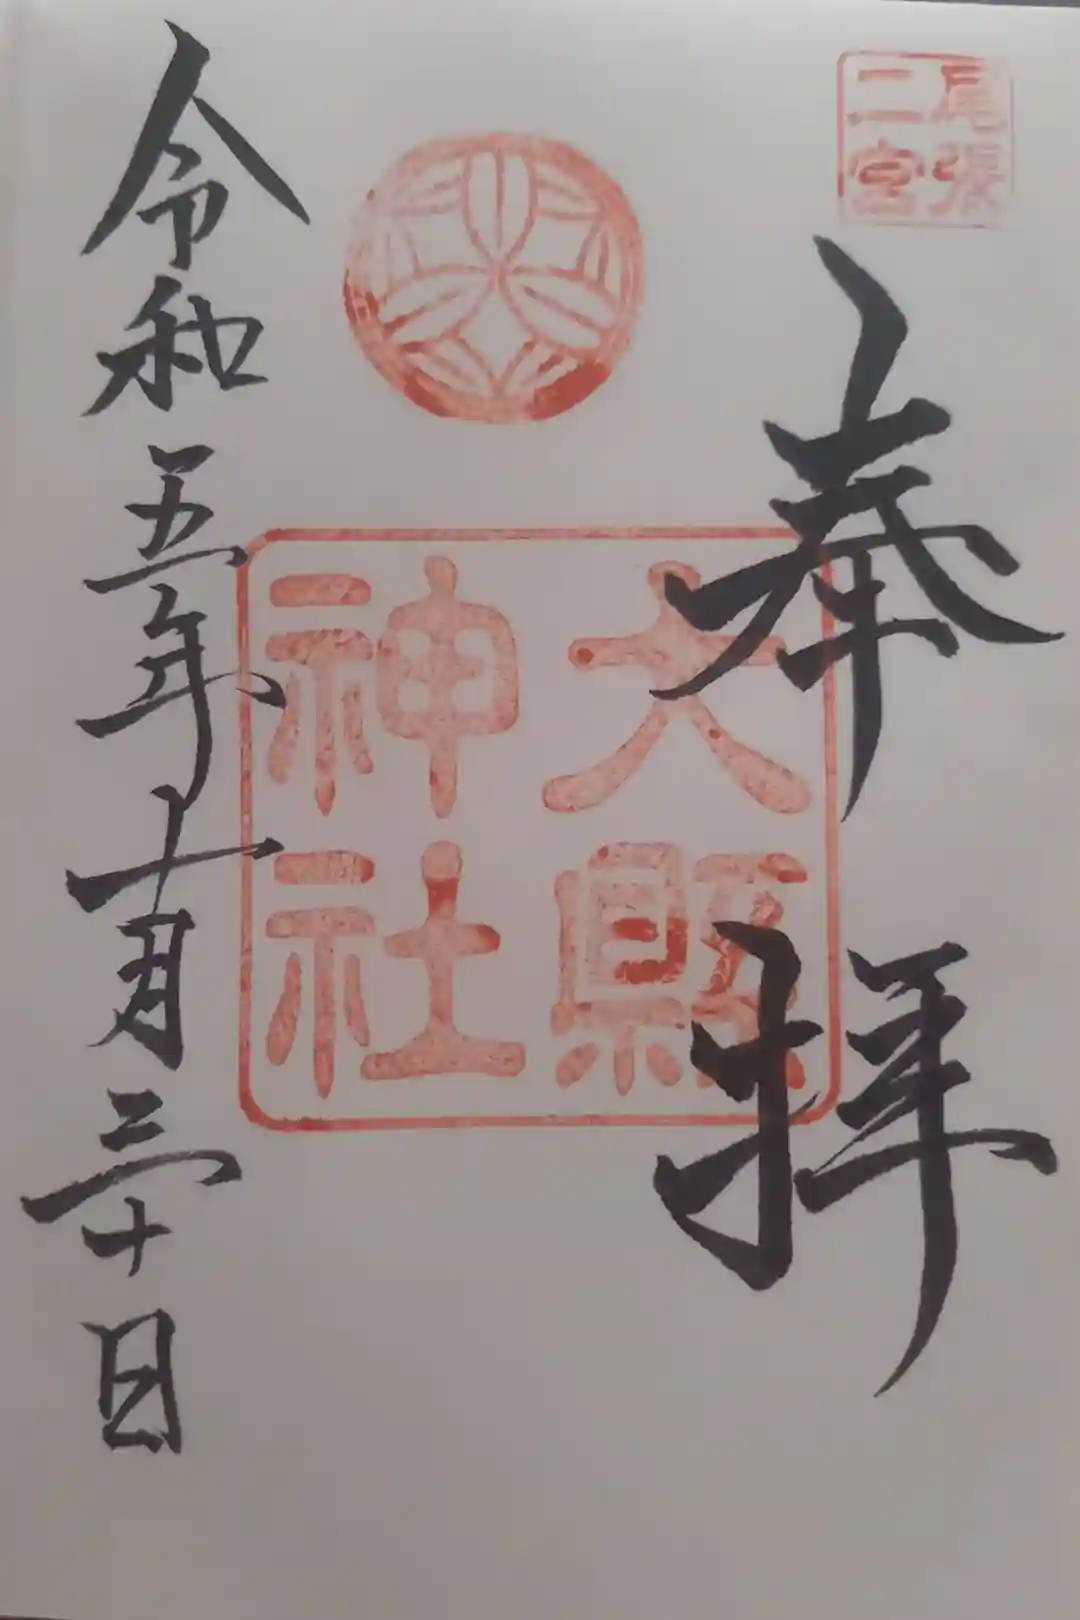 尾張
二宮
奉拝
大縣
神社
令和五年十月三十日